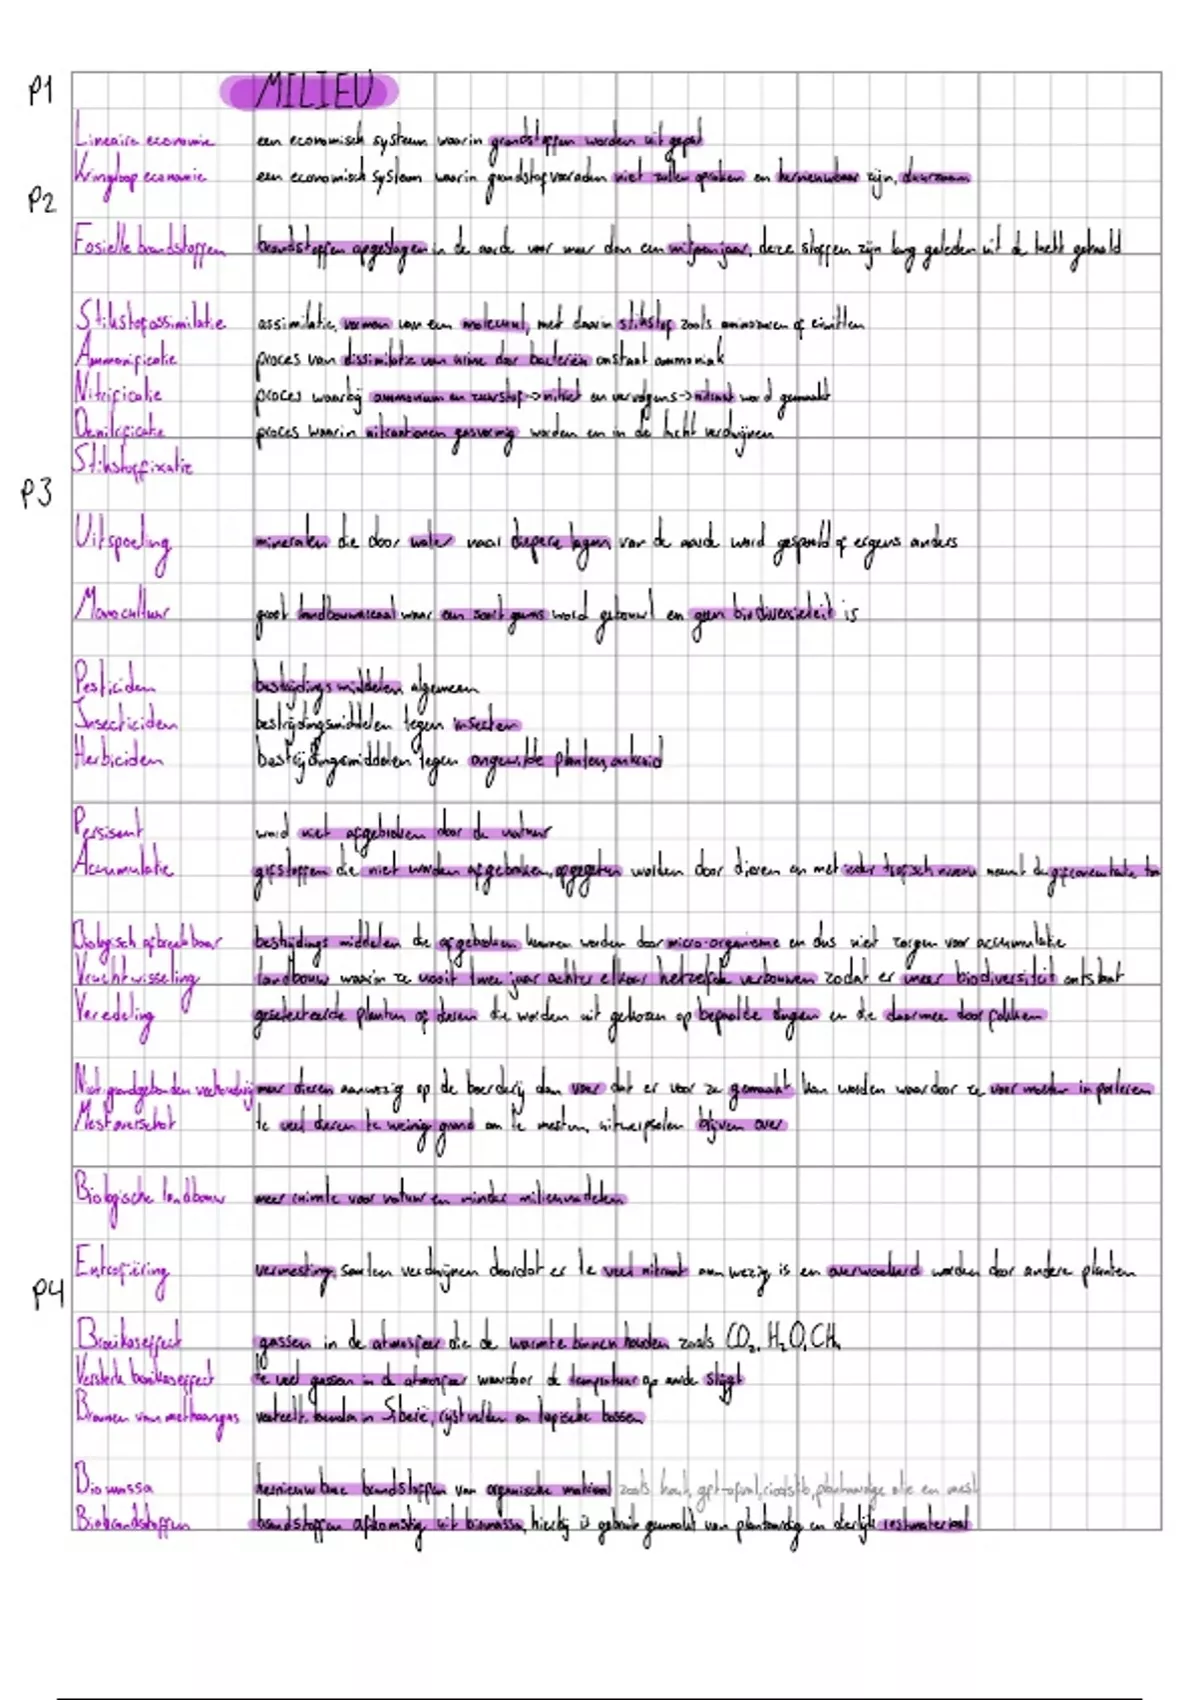 P1 MILIEU
Lineaire economie een economisch systeem waarin grondstoffen worden uit geput
Kringloop economie een economisch systeem waarin grondstofvooraden niet zullen opraken en hernieuwbaar zijn, duurzaam
P2
Fosielle brandstoffen brandstoffen opgeslagen in de aarde voor meer dan een miljoen jaar, deze stoffen zijn lang geleden uit de lucht gehaald
Stikstofassimilatie assimilatie, vormen van een molecuul, met daarin stikstof zoals aminozuren of eiwitten
Ammonificatie proces van dissimilatie van urine door bacteriën onstaat ammoniak
Nitrificatie proces waarbij ammonium en zuurstof -> nitriet en vervolgens -> nitraat word gemaakt
Denitrificatie proces waarin nitraationen gasvormig worden en in de lucht verdwijnen
Stikstoffixatie
P3
Uitspoeling mineralen die door water naar diepere lagen van de aarde word gespoeld of ergens anders
Monocultuur groot landbouwareaal waar een soort gewas word gebouwd en geen biodiversiteit is
Pesticiden bestrijdings middelen algemeen
Insecticiden bestrijdingsmiddelen tegen insecten
Herbiciden bestrijdingsmiddelen tegen ongewilde planten, onkruid
Persisent word niet afgebroken door de natuur
Accumulatie gifstoffen die niet worden afgebroken, opgegeten worden door dieren en met ieder trofisch niveau neemt de gifconcentratie toe
Biologisch afbreekbaar bestrijdings middelen die afgebroken kunnen worden door micro-organisme en dus niet zorgen voor accumulatie
Vruchtwisseling landbouw waarin ze nooit twee jaar achter elkaar hetzelfde verbouwen zodat er meer biodiversiteit ontstaat
Veredeling geselecteerde planten of dieren die worden uit gekozen op bepaalde dingen en die daarmee door fokken
Niet-grondgebonden veehouderij meer dieren aanwezig op de boerderij dan voer dat er voor ze gemaakt kan worden waardoor ze voer moeten importeren
Mestoverschot te veel dieren te weinig grond om te mesten, uitwerpselen blijven over
Biologische landbouw meer ruimte voor natuur en minder milieunadelen
Eutrofiëring vermesting, soorten verdwijnen doordat er te veel nitraat aanwezig is en overwoekerd worden door andere planten
P4
Broeikaseffect gassen in de atmosfeer die de warmte binnen houden zoals CO₂, H₂O, CH₄
Versterkt broeikaseffect te veel gassen in de atmosfeer waardoor de temperatuur op aarde stijgt
Bronnen van methaangas veeteelt, toendra in Siberië, rijstvelden en tropische bossen
Biomassa hernieuwbare brandstoffen van organische materiaal zoals hout, gft-afval, rioolslib, plantaardige olie en mest
Biobrandstoffen brandstoffen afkomstig uit biomassa, hierbij is gebruik gemaakt van plantaardig en dierlijk restmateriaal